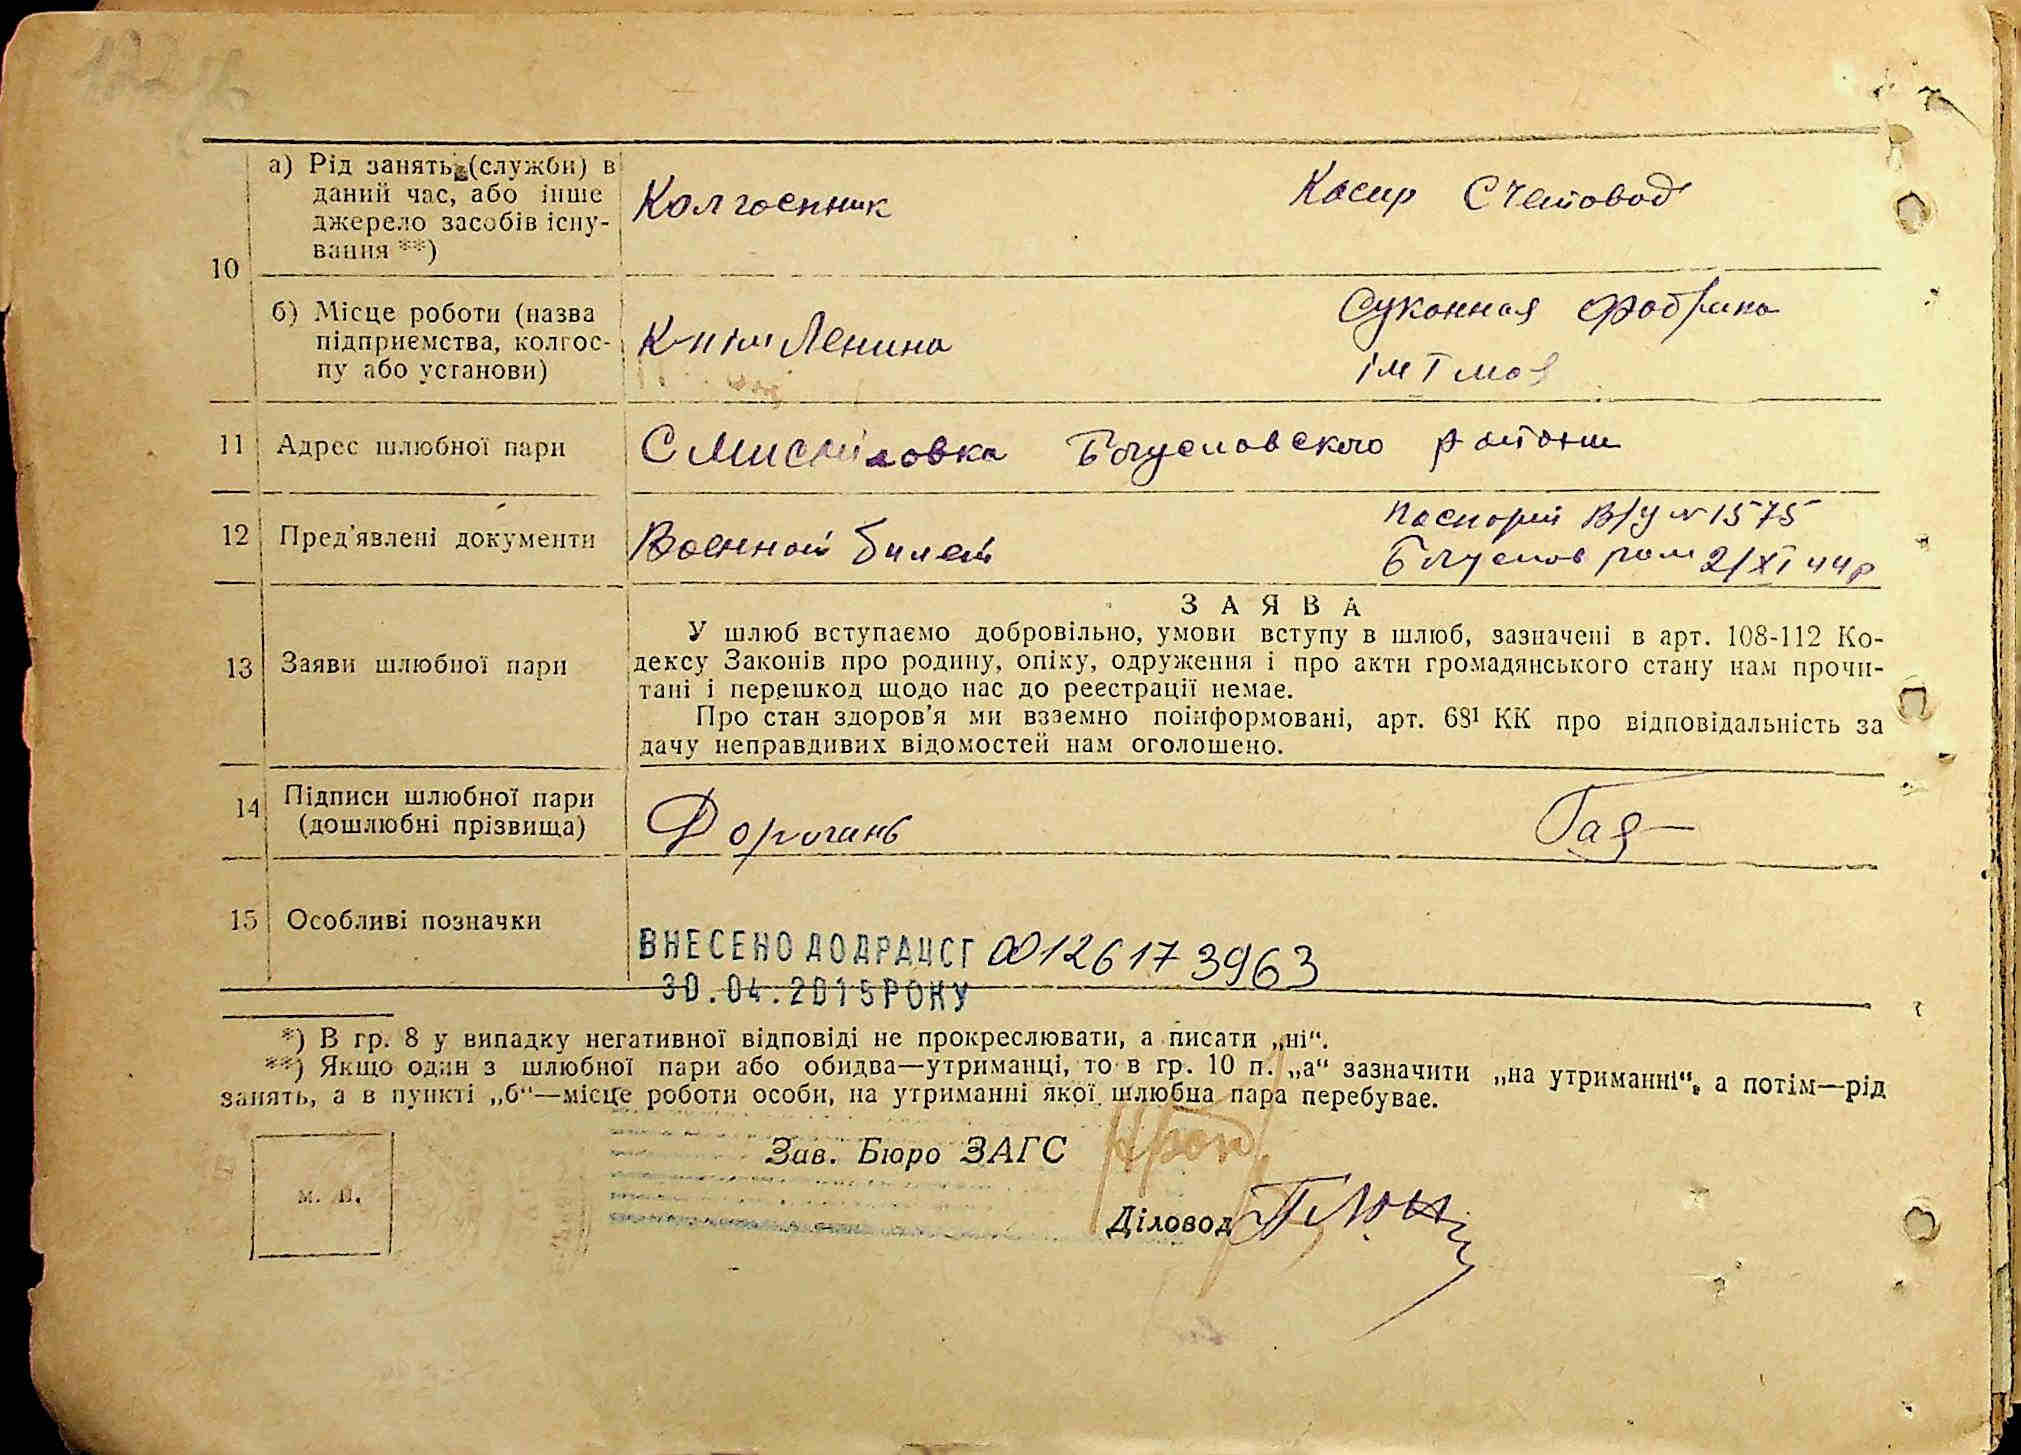 а) Рід занять (служби) в
даний час, або інше
джерело засобів існу-
вання **)
Колгоспник
Касир Счетовод
10
б) Місце роботи (назва
підприємства, колгос-
пу або установи)
К-п ім Ленина
Суконная Фабрика
ім 1 мая
11 Адрес шлюбної пари
С Мисайловка Богуславского района
12 Пред'явлені документи
Военной билет
Паспорт В/У № 1575
2/XI 44р
З А Я В А
У шлюб вступаємо добровільно, умови вступу в шлюб, зазначені в арт. 108-112 Ко-
дексу Законів про родину, опіку, одруження і про акти громадянського стану нам прочи-
тані і перешкод щодо нас до реєстрації немає.
Про стан здоров'я ми взаємно поінформовані, арт. 68¹ КК про відповідальність за
дачу неправдивих відомостей нам оголошено.
13 Заяви шлюбної пари
14 Підписи шлюбної пари
(дошлюбні прізвища)
Дорогань
Гая
15 Особливі позначки
ВНЕСЕНО ДО ДРАЦСГ 00126173963
30.04.2015 РОКУ
*) В гр. 8 у випадку негативної відповіді не прокреслювати, а писати „ні“.
**) Якщо один з шлюбної пари або обидва—утриманці, то в гр. 10 п. „а“ зазначити „на утриманні“, а потім—рід
занять, а в пункті „б“—місце роботи особи, на утриманні якої шлюбна пара перебуває.
Зав. Бюро ЗАГС
м. п.
Діловод